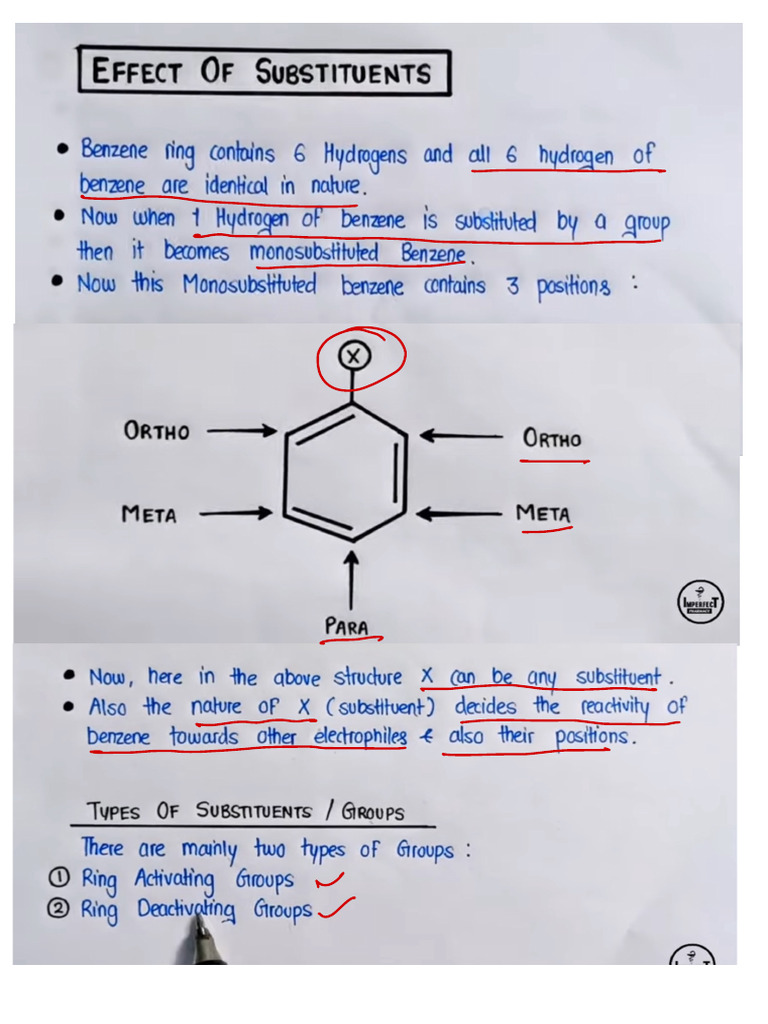 EFFECT OF SUBSTITUENTS
• Benzene ring contains 6 Hydrogens and all 6 hydrogen of
benzene are identical in nature.
• Now when 1 Hydrogen of benzene is substituted by a group
then it becomes monosubstituted Benzene.
• Now this Monosubstituted benzene contains 3 positions :
X
ORTHO
ORTHO
META
META
IMPERFECT
PHARMACY
PARA
• Now, here in the above structure X can be any substituent.
• Also the nature of X (substituent) decides the reactivity of
benzene towards other electrophiles & also their positions.
TYPES OF SUBSTITUENTS / GROUPS
There are mainly two types of Groups :
① Ring Activating Groups
② Ring Deactivating Groups